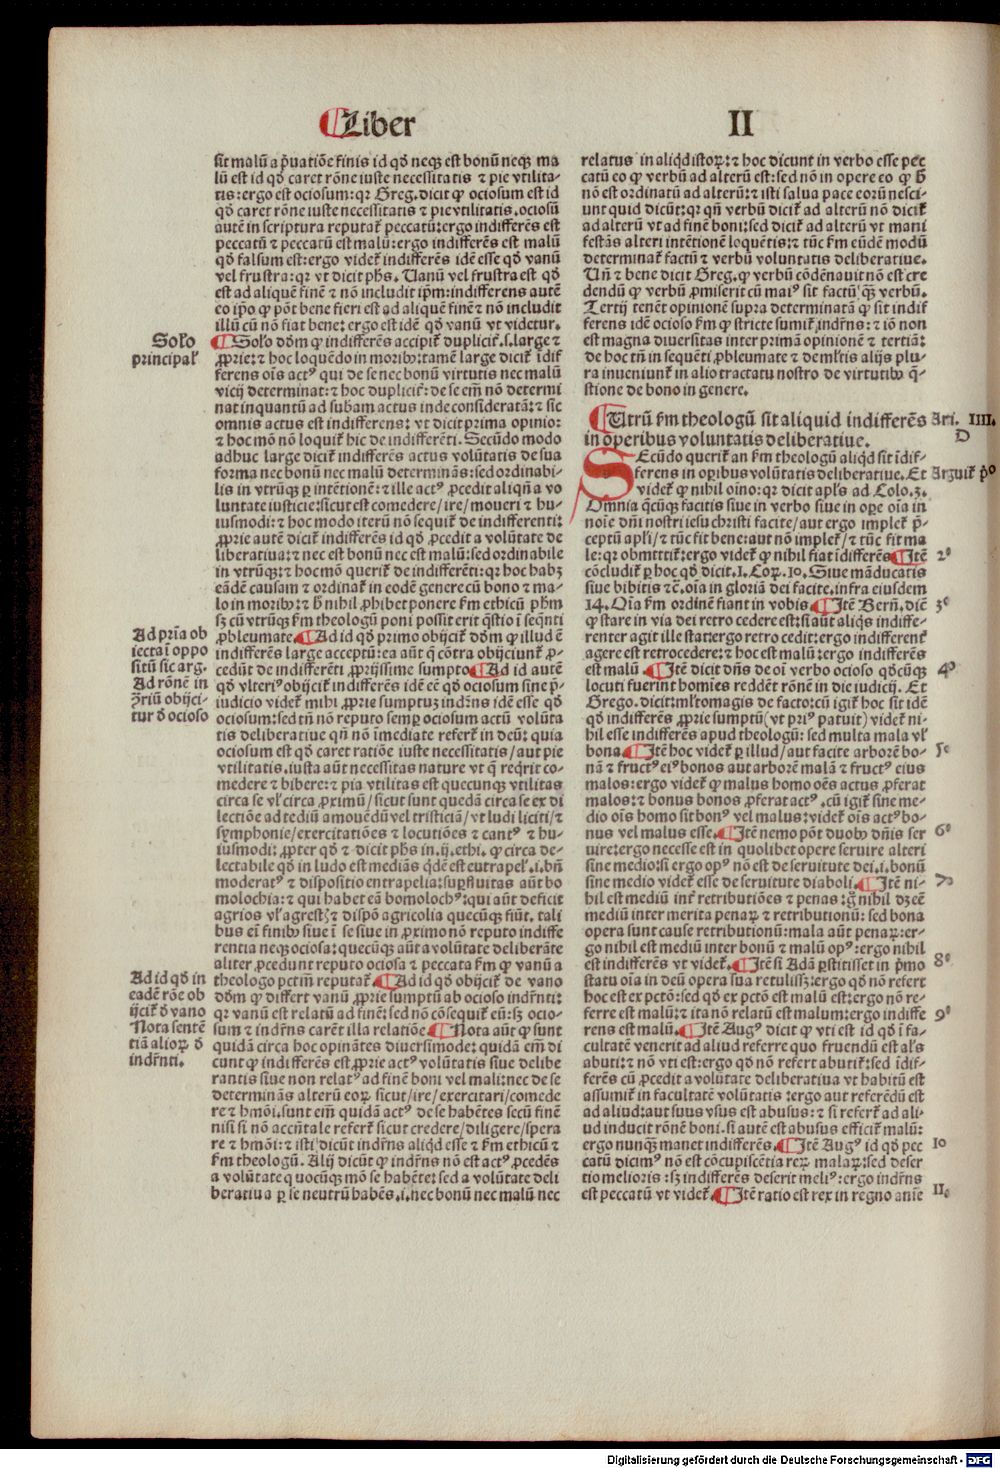 Liber
II
sit malū a p̱uatiōe finis id qd̄ neqꝫ est bonū neqꝫ ma
lū est id qd̄ caret rōne iuste necessitatis ⁊ pie vtilita-
tis: ergo est ociosum: qꝛ Greg. dicit ꝙ ociosum est id
qd̄ caret rōne iuste necessitatis ⁊ pie vtilitatis. ociosū
autē in scriptura reputat̄ peccatū: ergo indifferēs est
peccatū ⁊ peccatū est malū: ergo indifferēs est malū
qd̄ falsum est: ergo videt̄ indifferēs idē esse qd̄ vanū
vel frustra: qꝛ vt dicit ph̄s. Uanū vel frustra est qd̄
est ad aliquē finē ⁊ nō includit ip̄m: indifferens autē
eo ip̄o ꝙ pōt bene fieri est ad aliquē finē ⁊ nō includit
illū cū nō fiat bene: ergo est idē qd̄ vanū vt videtur.
Solo
principal̄
¶ Solo dōm ꝙ indifferēs accipit̄ duplicit̄. s. large ⁊
ꝓprie: ⁊ hoc loquēdo in moribꝰ: tamē large dicit̄ idif
ferens oīs actꝰ qui de se nec bonū virtutis nec malū
vicij determinat: ⁊ hoc duplicit̄: de se em̄ nō determi
nat inquantū ad sub̄am actus inde consideratā: ⁊ sic
omnis actus est indifferens: vt dicit prima opinio:
⁊ hoc mō nō loquit̄ hic de indifferēti. Secūdo modo
adhuc large dicit̄ indifferēs actus volūtatis de sua
forma nec bonū nec malū determinās: sed ordinabi-
lis in vtrūqꝫ ꝑ intētionē: ⁊ ille actꝰ ꝓcedit aliqn̄ a vo
luntate iusticie: sicut est comedere / ire / moueri ⁊ hu-
iusmodi: ⁊ hoc modo iterū nō sequit̄ de indifferenti:
ꝓprie autē dicit̄ indifferēs id qd̄ ꝓcedit a volūtate de
liberatiua: ⁊ nec est bonū nec est malū: sed ordinabile
in vtrūqꝫ: ⁊ hoc mō querit̄ de indifferēti: qꝛ hoc habꝫ
eādē causam ⁊ ordinat̄ in eodē genere cū bono ⁊ ma-
lo in moribꝰ: ⁊ h̄ nihil ꝓhibet ponere km̄ ethicū ph̄m
sꝫ cū vtrūqꝫ km̄ theologū poni possit erit q̄stio ī seq̄nti
Ad prīa ob
iecta ī oppo
sitū sic arg.
Ad rōnē in
ꝓhleumate. ¶ Ad id qd̄ primo obijcit̄ dōm ꝙ illud ē
indifferēs large acceptū: ea aūt q̄ cōtra obijciunt̄ ꝓ-
cedūt de indifferēti ꝓprijssime sumpto. ¶ Ad id autē
qd̄ vlteriꝰ obijcit̄ indifferēs idē eē qd̄ ociosum sine p̄-
iudicio videt̄ mihi ꝓprie sumptuꝫ indr̄ns idē esse qd̄
tur ō ocioso
ociosum: sed tn̄ nō reputo semꝑ ociosum actū volūta
tis deliberatiue qn̄ nō īmediate refert̄ in deū: quia
ociosum est qd̄ caret ratiōe iuste necessitatis / aut pie
vtilitatis. iusta aūt necessitas nature vt q̄ req̄rit co-
medere ⁊ bibere: ⁊ pia vtilitas est quecunqꝫ vtilitas
circa se vl̄ circa ꝓximū / sicut sunt quedā circa se ex di
lectiōe ad tediū amouēdū vel tristiciā / vt ludi liciti / ⁊
symphonie / exercitatiōes ⁊ locutiōes ⁊ cantꝰ ⁊ hu-
iusmodi: ꝓpter qd̄ ⁊ dicit ph̄s in .ij. ethi. ꝙ circa de-
lectabile qd̄ in ludo est mediās q̄dē est eutrapel̄. i. bn̄
moderatꝰ ⁊ dispositio entrapelia: suꝑfluitas aūt bo
molochia: ⁊ qui habet eā bomolochꝰ: qui aūt deficit
agrios vl̄ agrestꝭ ⁊ dispō agricolia quecūqꝫ fiūt. tali
bus em̄ finibꝰ siue ī se siue in ꝓximo nō reputo indiffe
rentia neqꝫ ociosa: quecūqꝫ aūt a volūtate deliberāte
aliter ꝓcedunt reputo ociosa ⁊ peccata km̄ ꝙ vanū a
Ad id qd̄ in
eadē rōe ob
ijcit̄ ō vano
Nota sentē
tiā alioꝝ ō
indr̄nti.
theologo pctm̄ reputat̄. ¶ Ad id qd̄ obijcit̄ de vano
dōm ꝙ differt vanū ꝓprie sumptū ab ocioso indr̄nti:
qꝛ vanū est relatū ad finē: sed nō cōsequit̄ eū: sꝫ ocio-
sum ⁊ indr̄ns carēt illa relatiōe. ¶ Nota aūt ꝙ sunt
quidā circa hoc opinātes diuersimode: quidā em̄ di
cunt ꝙ indifferēs est ꝓprie actꝰ volūtatis siue delibe
rantis siue non relatꝰ ad finē boni vel mali: nec de se
determinās alterū eoꝝ sicut / ire / exercitari / comede
re ⁊ hmōi. sunt em̄ quidā actꝰ de se habētes secū finē
nisi si nō accn̄tale refert̄ sicut credere / diligere / spera
re ⁊ hmōi: ⁊ isti dicūt indr̄ns aliqd̄ esse ⁊ km̄ ethicū ⁊
km̄ theologū. Alij dicūt ꝙ indr̄ns nō est actꝰ ꝓcedēs
a volūtate quocūqꝫ mō se habēte: sed a volūtate deli
beratiua ꝑ se neutrū habēs. i. nec bonū nec malū nec
relatus in aliqd̄ istoꝝ: ⁊ hoc dicunt in verbo esse pec
catū eo ꝙ verbū ad alterū est: sed nō in opere eo ꝙ h̄
nō est ordinatū ad alterū: ⁊ isti salua pace eorū nesci-
unt quid dicūt: qꝛ qn̄ verbū dicit̄ ad alterū nō dicit̄
ad alterū vt ad finē boni: sed dicit̄ ad alterū vt mani
festās alteri intētionē loquētis: ⁊ tūc km̄ eūdē modū
determinat̄ factū ⁊ verbū voluntatis deliberatiue.
Uñ ⁊ bene dicit Greg. ꝙ verbū cōdēnauit nō est cre
dendū ꝙ verbū ꝓmiserit cū maiꝰ sit factū qꝫ verbū.
Tertij tenēt opinionē supra determinatā ꝙ sit indif
ferens idē ocioso km̄ ꝙ stricte sumit̄ indr̄ns: ⁊ iō non
est magna diuersitas inter primā opinionē ⁊ tertiā:
de hoc tn̄ in sequēti ꝓbleumate ⁊ de ml̄tis alijs plu-
ra inueniunt̄ in alio tractatu nostro de virtutibꝰ q̄-
stione de bono in genere.
¶ Utrū km̄ theologū sit aliquid indifferēs
in operibus voluntatis deliberatiue.
Ari. IIII.
D
Secūdo querit̄ an km̄ theologū aliqd̄ sit īdif-
ferens in oꝑibus volūtatis deliberatiue. Et
Arguit̄ p̄o
videt̄ ꝙ nihil oīno: qꝛ dicit apl̄s ad Colo. 3.
Omnia q̄cūqꝫ facitis siue in verbo siue in oꝑe oīa in
noīe dn̄i nostri iesu christi facite / aut ergo implet̄ p̄-
ceptū apl̄i / ⁊ tūc fit bene: aut nō implet̄ / ⁊ tūc fit ma
le: qꝛ obmittit̄: ergo videt̄ ꝙ nihil fiat īdifferēs. ¶ Itē
2º
cōcludit̄ ꝑ hoc qd̄ dicit. I. Coꝝ. 10. Siue māducatis
siue bibitis ⁊c̄. oīa in gloriā dei facite. infra eiusdem
14. Oīa km̄ ordinē fiant in vobis. ¶ Itē Bern̄. dicit
3º
ꝙ stare in via dei retro cedere est: si aūt aliqs indiffe-
renter agit ille stat: ergo retro cedit: ergo indifferent̄
agere est retrocedere: ⁊ hoc est malū: ergo indifferēs
est malū. ¶ Itē dicit dn̄s de oī verbo ocioso qd̄cūqꝫ
4º
locuti fuerint homīes reddēt rōnē in die iudicij. Et
Grego. dicit: ml̄tomagis de facto: cū igit̄ hoc sit idē
qd̄ indifferēs ꝓprie sumptū (vt priꝰ patuit) videt̄ ni-
hil esse indifferēs apud theologū: sed multa mala vl̄
bona. ¶ Itē hoc videt̄ ꝑ illud / aut facite arborē bo-
5º
nā ⁊ fructꝰ eiꝰ bonos aut arborē malā ⁊ fructꝰ eius
malos: ergo videt̄ ꝙ malus homo oēs actus ꝓferat
malos: ⁊ bonus bonos ꝓferat actꝰ. cū igit̄ sine me-
dio oīs homo sit bonꝰ vel malus: videt̄ oīs actꝰ bo-
nus vel malus esse. ¶ Itē nemo pōt duobꝰ dn̄is ser
6º
uire: ergo necesse est in quolibet opere seruire alteri
sine medio: si ergo opꝰ nō est de seruitute dei. i. bonū
sine medio videt̄ esse de seruitute diaboli. ¶ Itē ni-
7º
hil est mediū int̄ retributiōes ⁊ penas: ḡ nihil dꝫ eē
mediū inter merita penaꝝ ⁊ retributionū: sed bona
opera sunt cause retributionū: mala aūt penaꝝ: er-
go nihil est mediū inter bonū ⁊ malū opꝰ: ergo nihil
est indifferēs vt videt̄. ¶ Itē si Adā ꝑstitisset in p̄mo
8º
statu oīa in deū opera sua retulissꝫ: ergo qd̄ nō refert
hoc est ex pctō: sed qd̄ ex pctō est malū est: ergo nō re-
ferre est malū: ⁊ ita nō relatū est malum: ergo indiffe
9º
rens est malū. ¶ Itē Augꝰ dicit ꝙ vti est id qd̄ ī fa-
cultatē venerit ad aliud referre quo fruendū est al̄s
abuti: ⁊ nō vti est: ergo qd̄ nō refert abutit̄: sed īdif-
ferēs cū ꝓcedit a volūtate deliberatiua vt habitū est
assumit̄ in facultatē volūtatis: ergo aut referēdū est
ad aliud: aut suus vsus est abusus: ⁊ si refert̄ ad ali-
ud inducit rōnē boni. si autē est abusus efficit̄ malū:
ergo nunqꝫ manet indifferēs. ¶ Itē Augꝰ id qd̄ pec
10
catū dicimꝰ nō est cōcupiscētia reꝝ malaꝝ: sed deser
tio melioris: sꝫ indifferēs deserit meliꝰ: ergo indr̄ns
est peccatū vt videt̄. ¶ Itē ratio est rex in regno aniē
II.
Digitalisierung gefördert durch die Deutsche Forschungsgemeinschaft - DFG